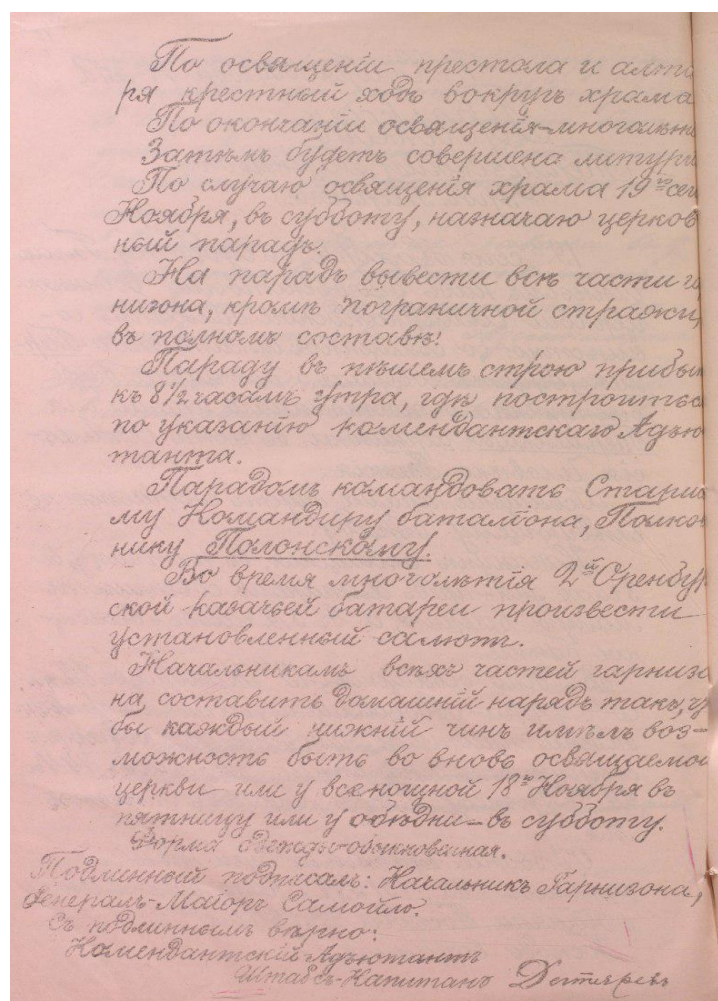 По освященіи престола и алта
ря крестный ходъ вокругъ храма
По окончаніи освященія–многолѣтіе
Затѣмъ будетъ совершена литурги
По случаю освященія храма 19го сег
Ноября, въ субботу, назначаю церков
ный парадъ.
На парадъ вывести всѣ части га
низона, кромѣ пограничной стражи,
въ полномъ составѣ!
Параду въ пѣшемъ строю прибыт
къ 8 1/2 часамъ утра, гдѣ построиться
по указанію комендантскаго Адъю
танта.
Парадомъ командовать Старше
му Командиру баталіона, Полков
нику Полонскому.
Во время многолѣтія 2й Оренбур
ской казачьей батареи произвести
установленный салютъ.
Начальникамъ всѣхъ частей гарнизо
на составить домашній нарядъ такъ, что
бы каждый нижній чинъ имѣлъ воз=
можность быть во вновь освящаемой
церкви или у всенощной 18го Ноября въ
пятницу или у обѣдни – въ субботу.
Форма одежды – обыкновенная.
Подлинный подписалъ: Начальникъ Гарнизона,
Генералъ-Маіоръ Самойло.
Съ подлиннымъ вѣрно:
Комендантскій Адъютантъ
Штабсъ-Капитанъ